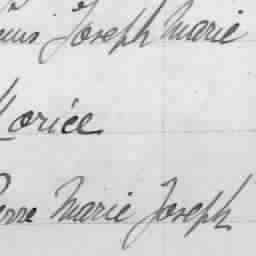 Louis Joseph Marie
Morice
Pierre Marie Joseph